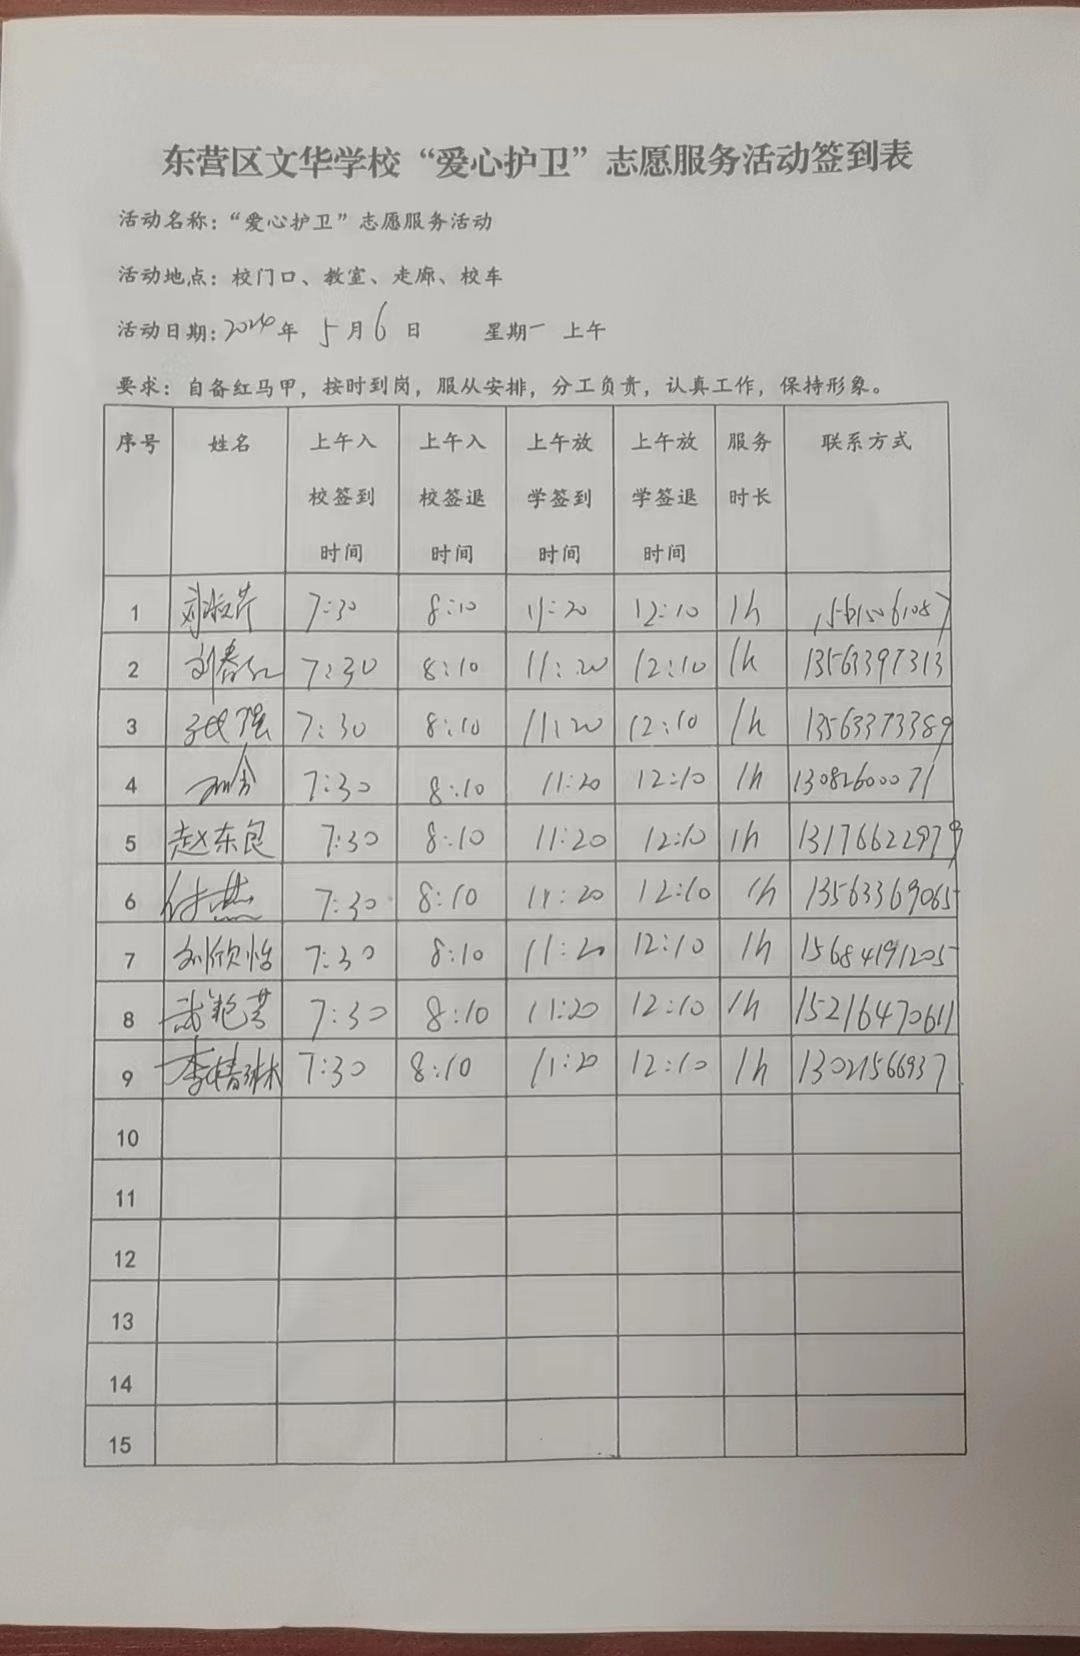 东营区文华学校“爱心护卫”志愿服务活动签到表
活动名称：“爱心护卫”志愿服务活动
活动地点：校门口、教室、走廊、校车
活动日期：2024年 5月6日 星期一 上午
要求：自备红马甲，按时到岗，服从安排，分工负责，认真工作，保持形象。
序号 姓名 上午入校签到时间 上午入校签退时间 上午放学签到时间 上午放学签退时间 服务时长 联系方式
1 7:30 8:10 11:20 12:10 1h 15615061087
2 刘春红 7:30 8:10 11:20 12:10 1h 13563397313
3 张强 7:30 8:10 11:20 12:10 1h 13563373389
4 7:30 8:10 11:20 12:10 1h 13082600071
5 赵东良 7:30 8:10 11:20 12:10 1h 13176622979
6 付燕 7:30 8:10 11:20 12:10 1h 13563369065
7 刘欣怡 7:30 8:10 11:20 12:10 1h 15684191205
8 武艳芳 7:30 8:10 11:20 12:10 1h 15216470611
9 李倩琳 7:30 8:10 11:20 12:10 1h 13021566937
10
11
12
13
14
15